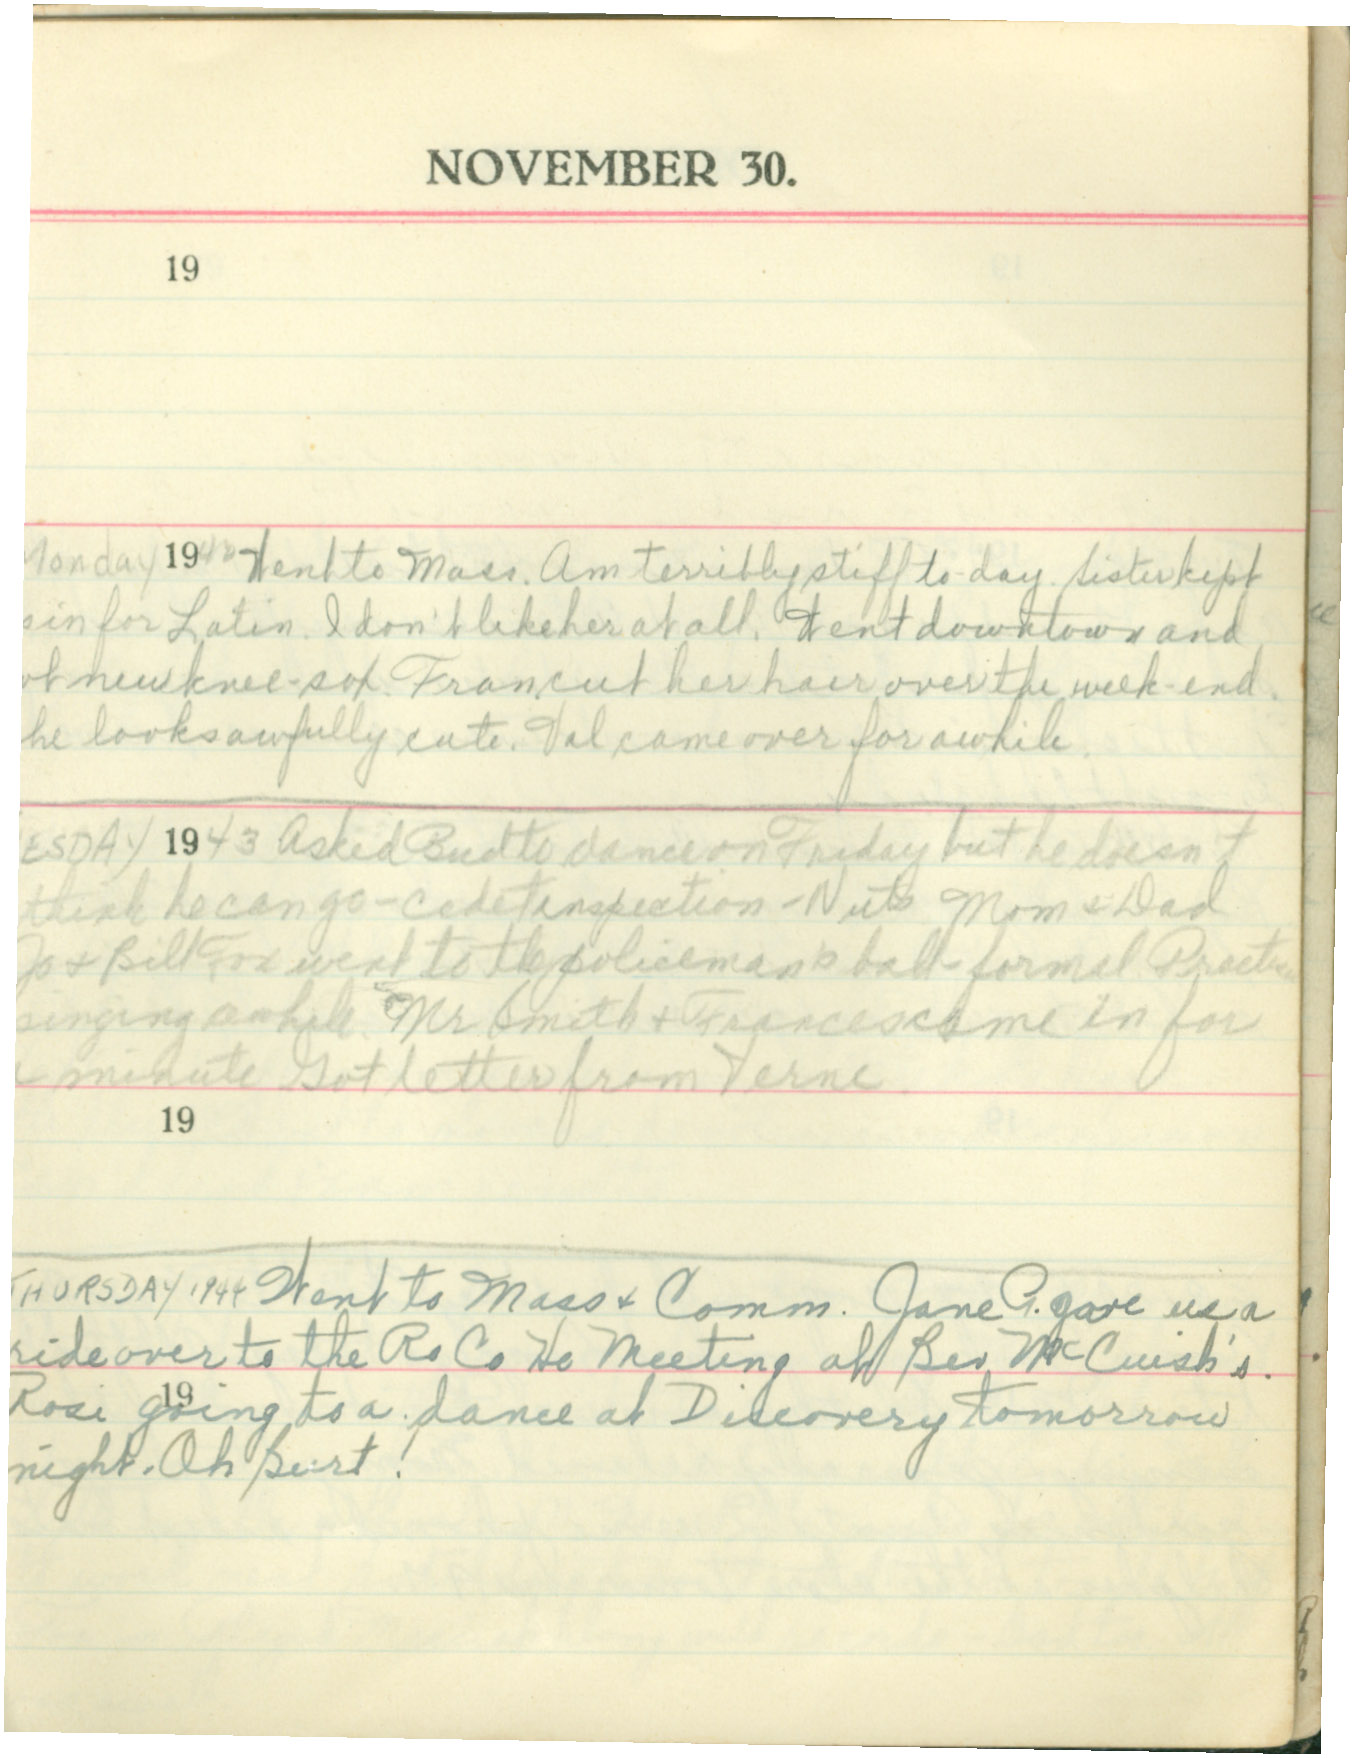 NOVEMBER 30.
19
Monday 1942 Went to Mass. Am terribly stiff to-day. Sister kept
in for Latin. I don't like her at all. Went downtown and
new knee-sox. Fran cut her hair over the week-end.
he looks awfully cute. Val came over for awhile.
ESDAY 1943 Asked Bud to dance on Friday but he doesn't
think he can go - cadet inspection - Nuts Mom & Dad
Jo & Bill Fox went to the policeman's ball - formal Practice
singing awhile. Mr Smith & Frances came in for
a minute Got letter from Verne
19
THURSDAY 1944 Went to Mass & Comm. Jane P. gave us a
ride over to the Ro Co Ho Meeting at Bev McCuish's.
19
Rosi going to a dance at Discovery tomorrow
night. Oh Burt!